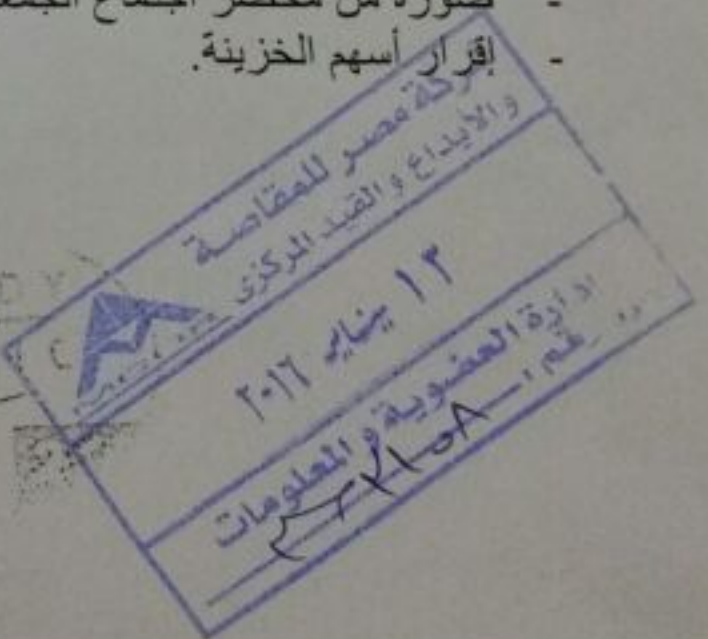 - صورة من محضر اجتماع
- إقرار أسهم الخزينة.
شركة مصر للمقاصة
والايداع والقيد المركزى
١٣ يناير ٢٠١٦
ادارة العضوية و المعلومات
رقم :